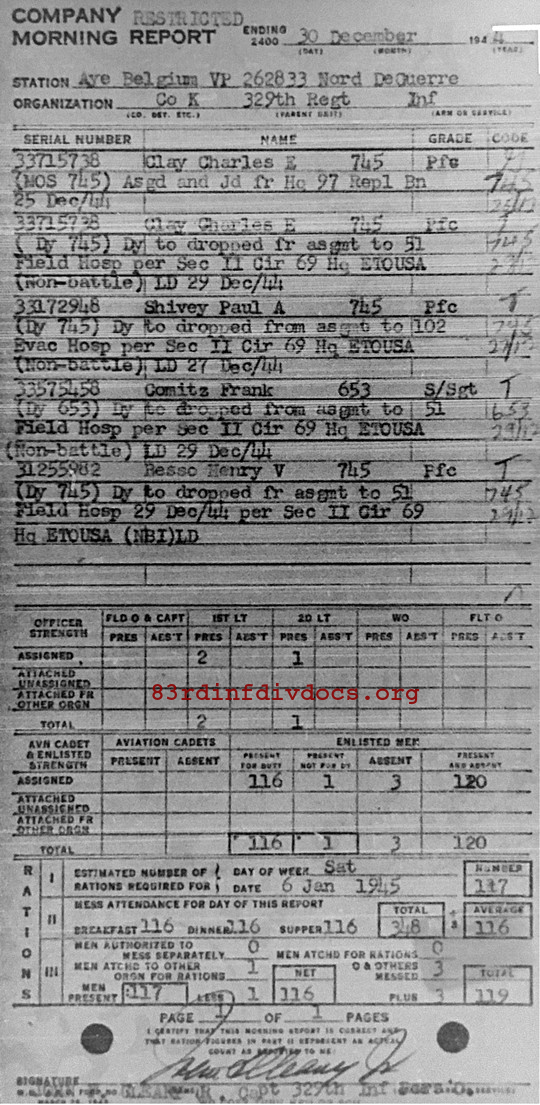 COMPANY RESTRICTED
MORNING REPORT ENDING 2400 30 December 1944
(DAY) (MONTH) (YEAR)
STATION Aye Belgium VP 262833 Nord DeGuerre
ORGANIZATION Co K 329th Regt Inf
(CO. DET. ETC.) (PARENT UNIT) (ARM OR SERVICE)
SERIAL NUMBER NAME GRADE CODE
33715738 Clay Charles E 745 Pfc
(MOS 745) Asgd and Jd fr Hq 97 Repl Bn 745
25 Dec/44 25/12
33715738 Clay Charles E 745 Pfc
( Dy 745) Dy to dropped fr asgmt to 51 745
Field Hosp per Sec II Cir 69 Hq ETOUSA 29/12
(Non-battle) LD 29 Dec/44
33172948 Shivey Paul A 745 Pfc T
(Dy 745) Dy to dropped from asgmt to 102 745
Evac Hosp per Sec II Cir 69 Hq ETOUSA 27/12
(Non-battle) LD 27 Dec/44
33575458 Comitz Frank 653 S/Sgt T
(Dy 653) Dy to dropped from asgmt to 51 653
Field Hosp per Sec II Cir 69 Hq ETOUSA 29/12
(Non-battle) LD 29 Dec/44
31255982 Resso Henry V 745 Pfc T
(Dy 745) Dy to dropped fr asgmt to 51 745
Field Hosp 29 Dec/44 per Sec II Cir 69 29/12
Hq ETOUSA (NBI)LD
OFFICER STRENGTH FLD O & CAPT 1ST LT 2D LT WO FLT O
PRES ABS'T PRES ABS'T PRES ABS'T PRES ABS'T PRES ABS'T
ASSIGNED 2 1
ATTACHED UNASSIGNED
ATTACHED FR OTHER ORGN
83rdinfdivdocs.org
TOTAL 2 1
AVN CADET & ENLISTED STRENGTH AVIATION CADETS ENLISTED MEN
PRESENT ABSENT PRESENT FOR DUTY PRESENT NOT FOR DY ABSENT PRESENT AND ABSENT
ASSIGNED 116 1 3 120
ATTACHED UNASSIGNED
ATTACHED FR OTHER ORGN
TOTAL 116 1 3 120
RATIONS
I ESTIMATED NUMBER OF RATIONS REQUIRED FOR DAY OF WEEK Sat NUMBER
DATE 6 Jan 1945 117
II MESS ATTENDANCE FOR DAY OF THIS REPORT TOTAL AVERAGE
BREAKFAST 116 DINNER 116 SUPPER 116 348 ÷ 3 116
III MEN AUTHORIZED TO MESS SEPARATELY 0 MEN ATCHD FOR RATIONS 0
MEN ATCHD TO OTHER ORGN FOR RATIONS 1 NET O & OTHERS MESSED 3 TOTAL
MEN PRESENT 117 LESS 1 116 PLUS 3 119
PAGE 1 OF 1 PAGES
I CERTIFY THAT THIS MORNING REPORT IS CORRECT AND
THAT RATION FIGURES IN PART II REPRESENT AN ACTUAL
COUNT AS REPORTED TO ME
SIGNATURE
CLEARY JR, Capt 329th Inf